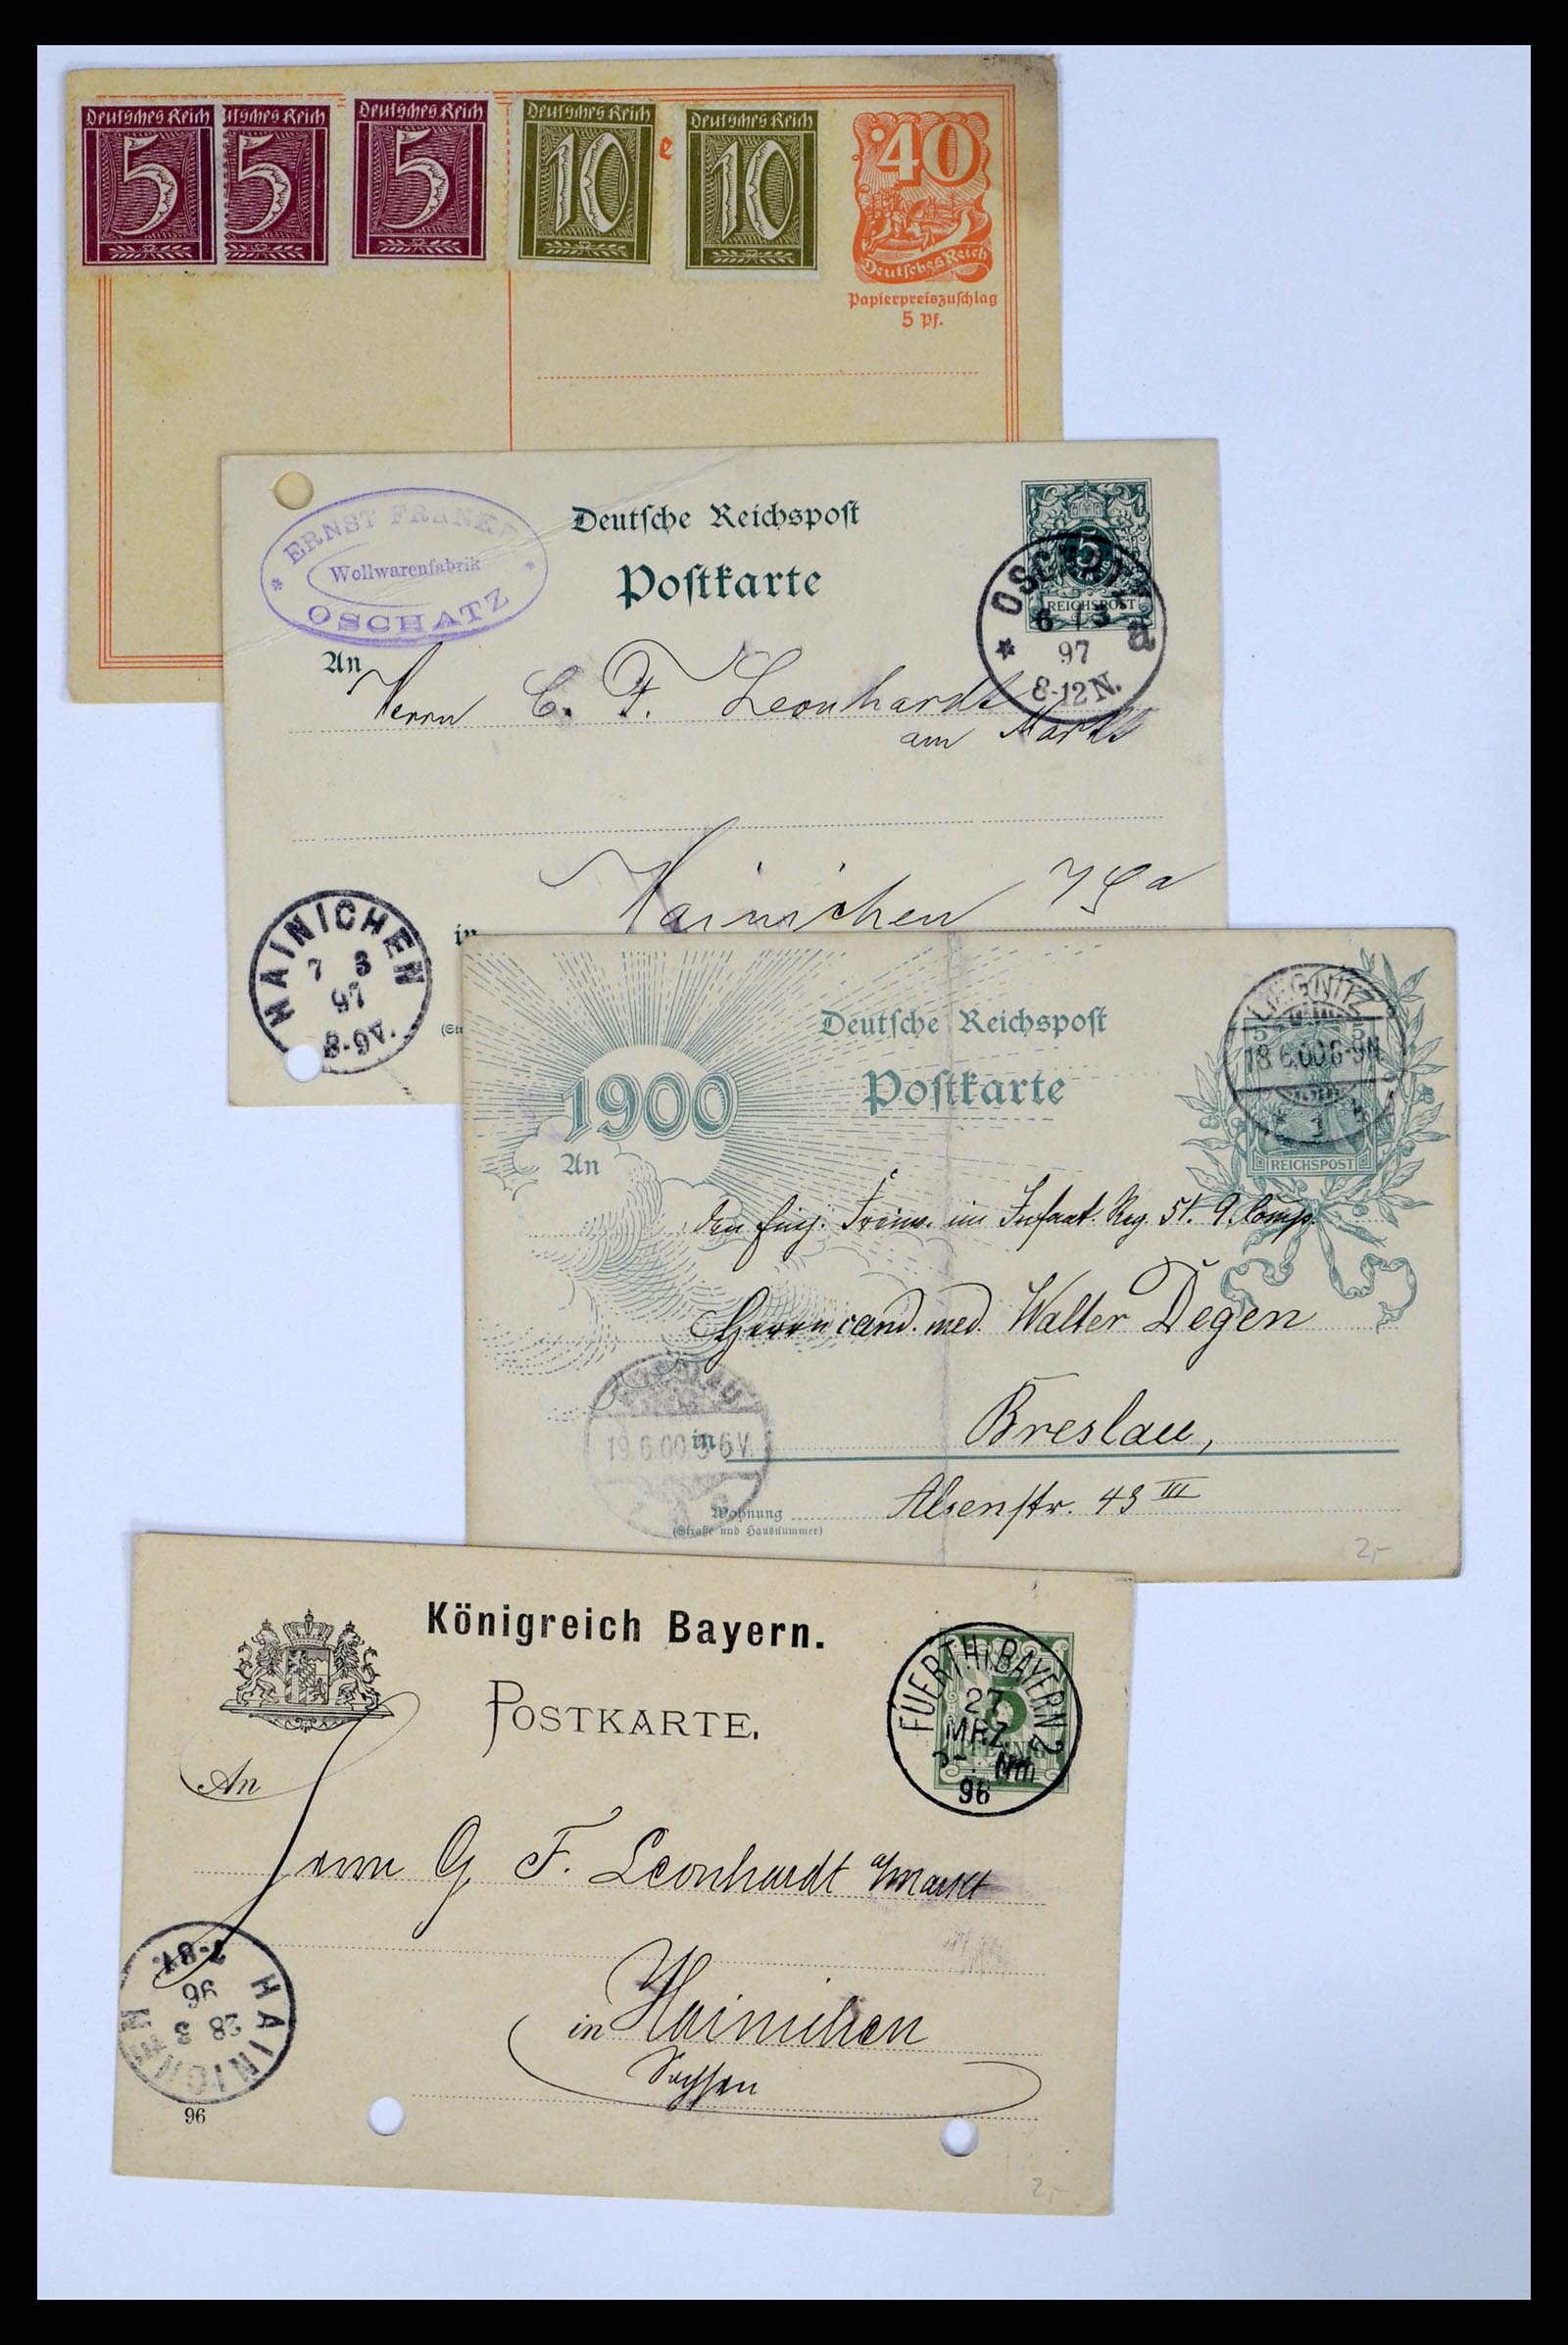 Deutsches Reich
5
tsches Reich
5
Deutsches Reich
5
Deutsches Reich
10
e
Deutsches Reich
10
40
Deutsches Reich
Papierpreiszuschlag
5 Pf.
ERNST FRANKE
Wollwarenfabrik
OSCHATZ
Deutsche Reichspost
Postkarte
5
REICHSPOST
OSCHATZ
6 3
97
8-12N.
a
An
Herrn C. F. Leonhardt
am Markt
Hainichen
in
HAINICHEN
7 3
97
8-9V.
Deutsche Reichspost
1900
Postkarte
LIEGNITZ
5 5
18.6.00.6-9N
REICHSPOST
An
im Infant. Reg. 51. 9. Comp.
Herrn cand. med. Walter Degen
in Breslau,
19.6.00. 6V.
Alsenstr. 43 III
Wohnung
(Straße und Hausnummer)
2,-
Königreich Bayern.
POSTKARTE.
5
FUERTH BAYERN 2
27
MRZ
Nm
96
An
Herrn G. F. Leonhardt a/Markt
in Hainichen
Sachsen
HAINICHEN
28 3
96
7-8V.
96
2,-